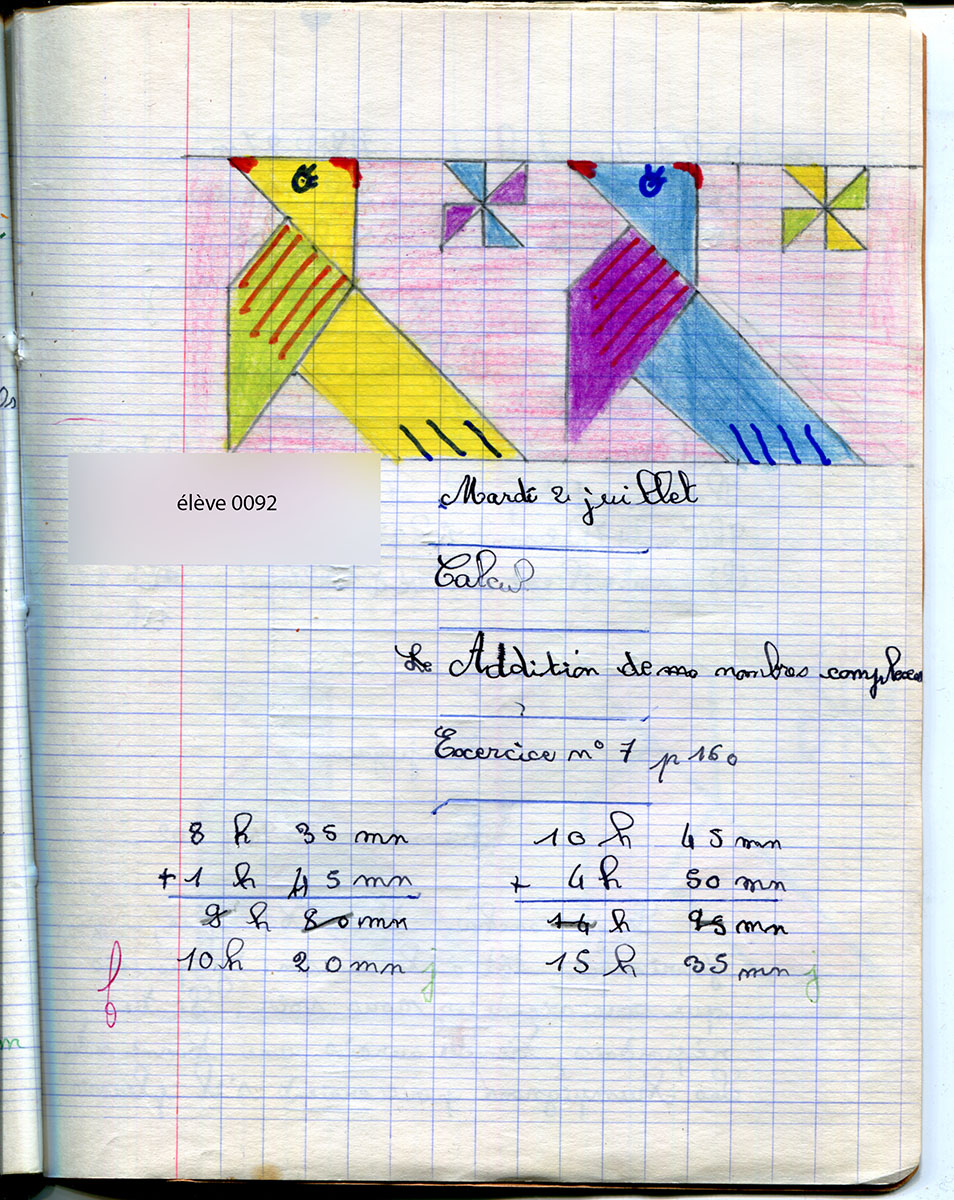 élève 0092
Mardi 2 juillet
Calcul
Le Addition de mo nombres complexes
Exercice n° 7 p 160
8 h 35 mn
+ 1 h 45 mn
9 h 80 mn
10 h 20 mn j
10 h 45 mn
+ 4 h 50 mn
14 h 95 mn
15 h 35 mn j